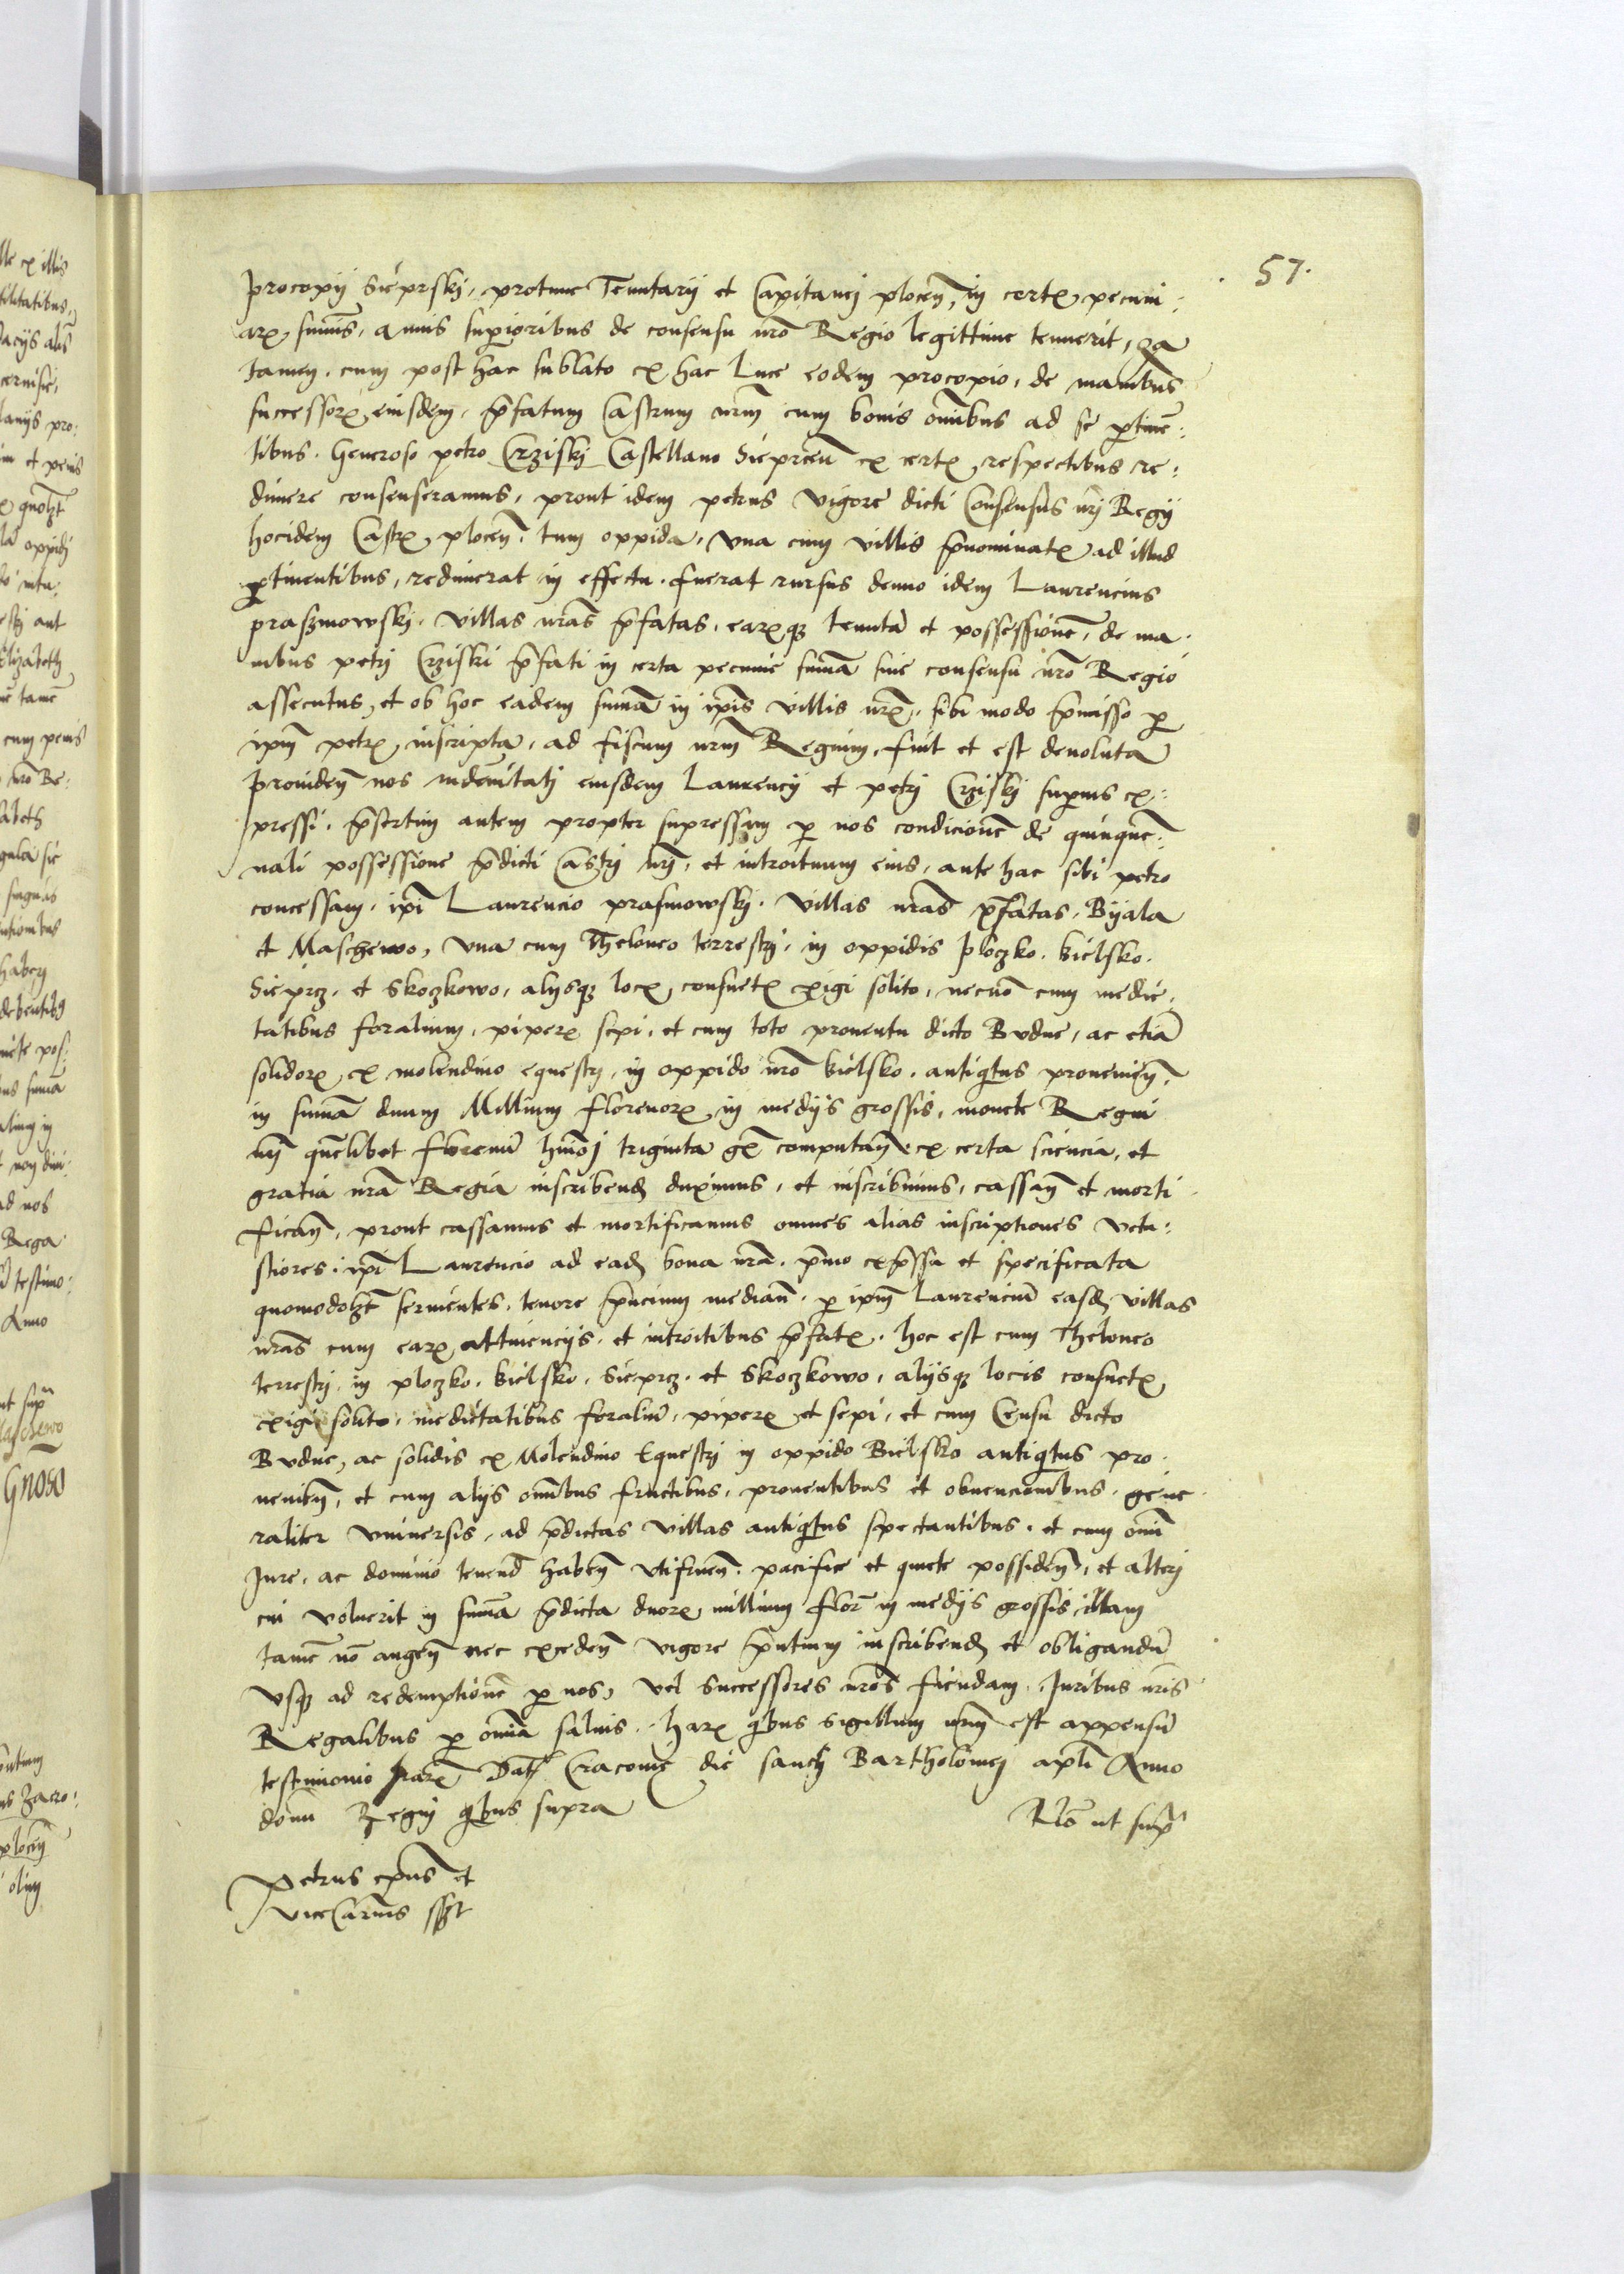 57.
procopij Sieprskj, protunc Tenutarij et Capitanej plocen, in certx pecuni:
arx summis, annis superioribus de consensu nro Regio legittime tenuerit, qa
tamen. cum post hac sublato ex hac luce eodem procopio, de manibus
successorx eiusdem, prefatum Castrum nrm cum bonis omibus ad se ptinen:
tibus. Generoso petro Crziskj Castellano Sieprcen ex certx respectibus re:
dimere consenseramus, prout idem petrus vigore dicti Consensus nrj Regij
hocidem Castrx plocen, tum oppida, vna cum villis prenominatx ad illud
ptinentibus, redimerat in effectu. fuerat rursus denuo idem Laurencius
praszmowskj. villas nras prefatas, earxqz tenuta et possessione, de ma-
nibus petrj Crziski prefati in certa pecunie summa sine consensu nro Regio
assecutus, et ob hoc eadem summa in ipis villis nrx, sibi modo premisso p
ipm petrx inscripta, ad fiscum nrm Regium, fuit et est deuoluta
prouiden nos indemnitatj eiusdem Laurencij et petrj Crziskj superius ex:
pressi. presertim autem propter supressam p nos condicione de quinquen:
nali possessione predicti Castrj nrj, et introituum eius, ante hac sibi petro
concessam. ipi Laurencio prasmowskj. villas nras prefatas. Byala
et Maschewo, vna cum Theloneo terrestrj. in oppidis ploczko. bielsko.
Sieprcz. et Skoczkowo, alysqz locx consuetx exigi solito, necno cum medie-
tatibus foralium, piperx sepi, et cum toto prouentu dicto Bvdne, ac etia
solidorx ex molendino equestrj, in oppido nro bielsko. antiqitus prouenien,
in summa duum Millium florenorx in medijs grossis, monete Regni
nrj quelibet florenum hmoj triginta gr computan. ex certa sciencia, et
gratia nra Regia inscribend duximus, et inscribimus, cassan et morti-
fican, prout cassamus et mortificamus omnes alias inscriptiones vetu:
stiores. ipi Laurencio ad ead bona nra. pmo expressa et specificata
quomodolzt seruientes. tenore presencium median. p ipm Laurenciu easd villas
nras cum earx attinencijs. et introitibus prefatx. hoc est cum Theloneo
terrestrj. in ploczko. bielsko. Sieprcz. et Skoczkowo, alijsqz locis consuetx
exigi solito, medietatibus foraliu, piperx et sepi, et cum Censu dicto
Bvdne, ac solidis ex Molendino Equestrj in oppido Bielsko antiqitus pro-
uenien, et cum alijs omibus fructibus, prouentibus et obuencionibus. gene-
raliter vniuersis, ad predictas villas antiqitus spectantibus. et cum omi
Jure, ac dominio tenend haben vtifruen. pacifice et quiete possiden, et alterj
cui voluerit in summa predicta duorx millium flor in medijs grossis illam
tame no augen nec exceden vigore presentium inscribend et obligandu
vsqz ad redemptione p nos, vel Successores nros fiendam. Juribus nris
Regalibus p omia saluis. harx qibus sigillum nrm est appensu
testimonio lrarx Dat Cracouie die sanctj Bartholomej apli Anno
domi Regnj qibus supra
Rlo ut supr
Petrus epus et
viceCarius sszt